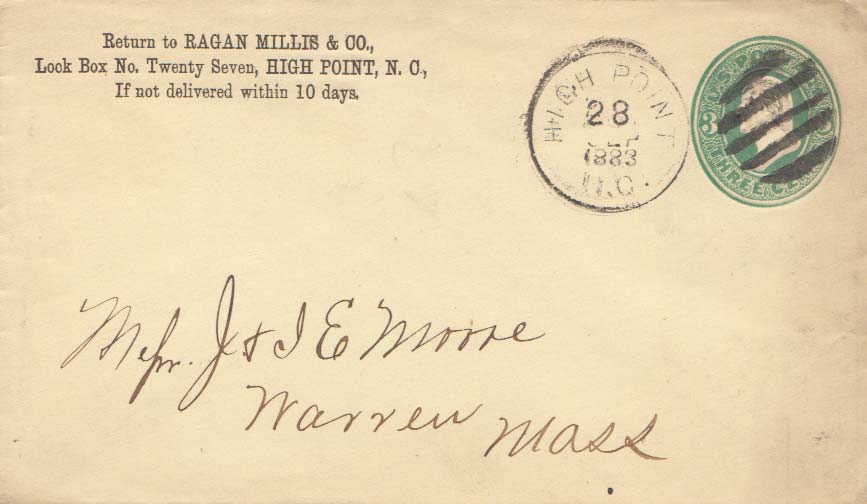 Return to RAGAN MILLIS & CO.,
Lock Box No. Twenty Seven, HIGH POINT, N. C.,
If not delivered within 10 days.
HIGH POINT
28
1883
N.C.
U.S. PO
3
THREE CE
Messr. J & I E Moore
Warren Mass